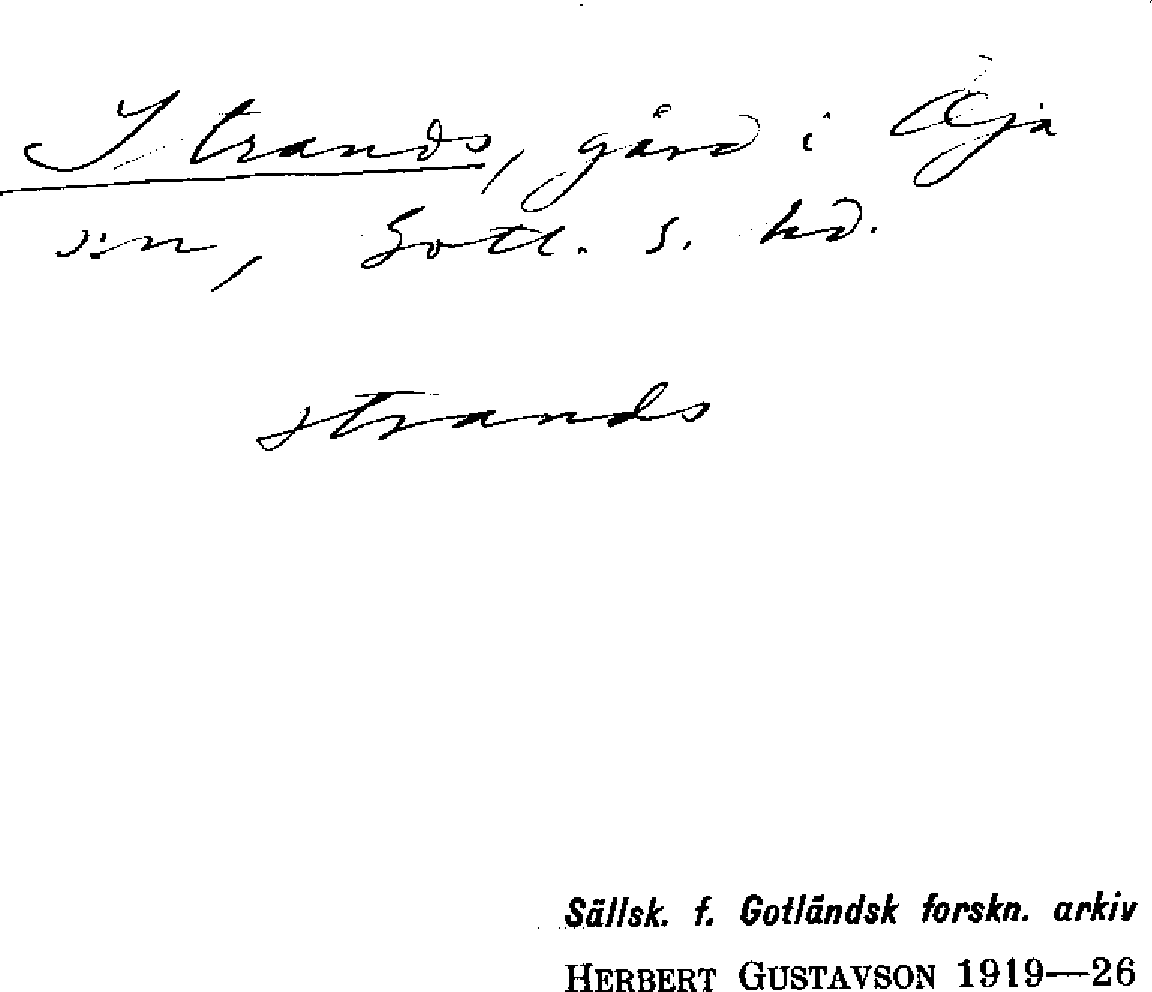 Strands, gård i Öja
s:n, Gotl. s. hd.
strands
Sällsk. f. Gotländsk forskn. arkiv
HERBERT GUSTAVSON 1919—26